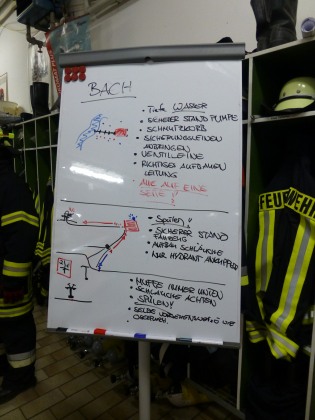 BACH
• Tiefe WASSER
• SICHERER STAND PUMPE
• SCHMUTZKORB
• SICHERUNGSLEINEN
ANBRINGEN
• VENTILLEINE
• RICHTIGES AUFBAUEN
LEITUNG
ALLE AUF EINE
SEITE !!
• Spülen !!
SICHERER STAND
• AUFBAU SCHLÄUCHE
• NUR HYDRANT
• MUFFE IMMER UNTEN
• SCHLÄUCHE ACHTEN
• SPÜLEN !
• SELBE WIE
FEUERWEHR